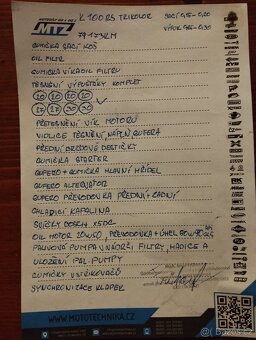 MTZ
K 100 RS TRIKOLOR
SACÍ 0,15-0,20
79173KM
VÝFUK 0,25-0,30
GUMIČKA SACÍ KOŠ
OIL FILTR
GUMIČKA VÍKA OIL FILTRU
TĚSNĚNÍ VÝPUSTKY KOMPLET
PŘETĚSNĚNÍ VÍK MOTORU
VIDLICE TĚSNĚNÍ NÁPLŇ GUFERA
PŘEDNÍ BRZDOVÉ DESTIČKY
GUMIČKA STARTER
GUFERO + GUMIČKA HLAVNÍ HŘÍDEL
GUFERO ALTERNÁTOR
GUFERO PŘEVODOVKA PŘEDNÍ + ZADNÍ
CHLADÍCÍ KAPALINA
SVÍČKY BOSCH X5DC
OIL MOTOR 20W50, PŘEVODOVKA + ÚHEL
PALIVOVÁ PUMPA V NÁDRŽI FILTRY, HADICE A
ULOŽENÍ PAL. PUMPY
GUMIČKY VSTŘIKOVAČŮ
SYNCHRONIZACE KLAPEK
WWW.MOTOTECHNIKA.CZ